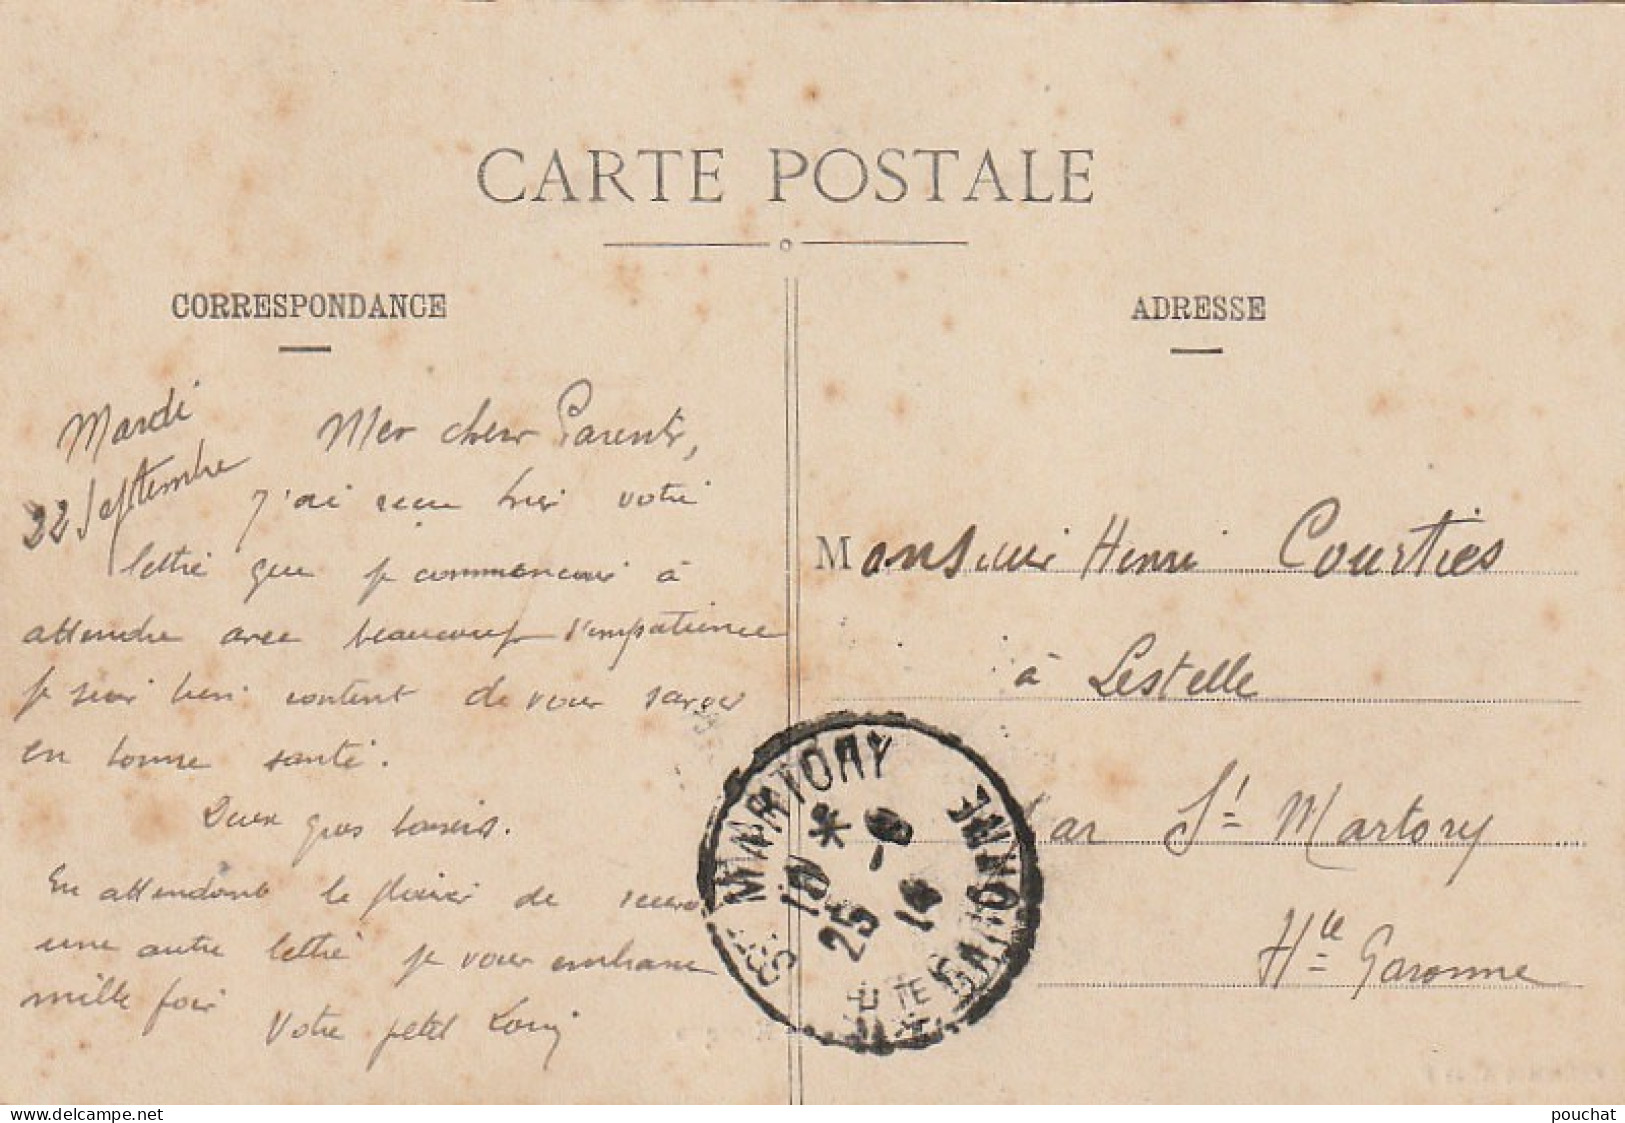 CARTE POSTALE
CORRESPONDANCE
ADRESSE
Mardi
22 Septembre
Mes chers Parents,
J'ai reçu hier votre
lettre que je commencais à
attendre avec beaucoup d'impatience
je suis bien content de vous savoir
en bonne santé.
Deux gros baisers.
En attendant le plaisir de recevoir
une autre lettre je vous embrasse
mille fois
Votre petit Louis
Monsieur Henri Courties
à Lestelle
par St Martory
Hte Garonne
ST MARTORY
10 *
25 -9
14
HTE GARONNE
delcampe.net
pouchat